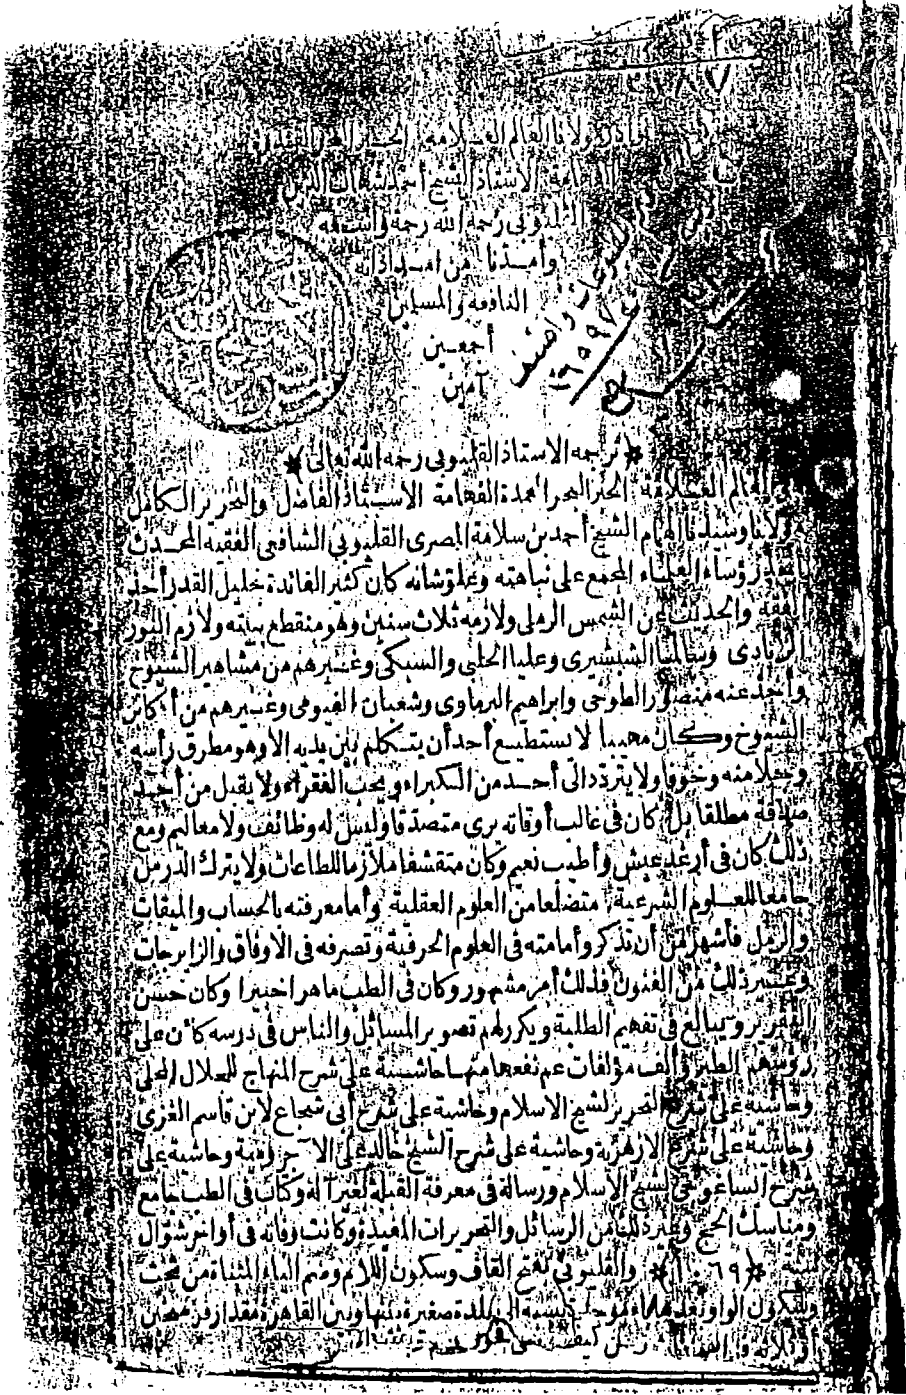 مولانا العالم العلامة الحبر البحر الفهامة
الأستاذ الشيخ أحمد شهاب الدين
القليوبى رحمه الله رحمة واسعة
وأمدنا من امداداته
النافعة والمسلمين
أجمعين
آمين
١٦٥٩٧
* ترجمة الاستاذ القليوبى رحمه الله تعالى *
العالم العلامة الحبر البحر العمدة الفهامة الاستاذ الفاضل والنحرير الكامل
مولانا وسيدنا الهمام الشيخ أحمد بن سلامة المصرى القليوبى الشافعى الفقيه المحدث
رؤساء العلماء المجمع على نباهته وعلو شانه كان كثير الفائدة جليل القدر أخذ
الفقه والحديث عن الشمس الرملى ولازمه ثلاث سنين وهو منقطع ببيته ولازم النور
الزيادى وسالما الشبشيرى وعليا الحلبى والسبكى وغيرهم من مشاهير الشيوخ
وأخذ عنه منصور الطوخى وابراهيم البرماوى وشعبان الفيومى وغيرهم من أكابر
الشيوخ وكان مهيبا لا يستطيع أحد أن يتكلم بين يديه الا وهو مطرق رأسه
وجلا منه وخوفا ولا يتردد الى أحد من الكبراء ويحب الفقراء ولا يقبل من أحد
صدقة مطلقا بل كان فى غالب أوقاته يرى متصدقا وليس له وظائف ولا معاليم ومع
ذلك كان فى أرغد عيش وأطيب نعيم وكان متقشفا ملازما للطاعات ولا يترك الدرس
جامعا للعلوم الشرعية متضلعا من العلوم العقلية وأما معرفته بالحساب والميقات
والرمل فأشهر من أن تذكر وأمامته فى العلوم الحرفية وتصرفه فى الاوفاق والزايرجات
وغير ذلك من الفنون فذلك أمر مشهور وكان فى الطب ماهرا خبيرا وكان حسن
التقرير ويبالغ فى تفهيم الطلبة ويكرر لهم تصوير المسائل والناس فى درسه كأن على
رؤسهم الطير وألف مؤلفات عم نفعها منها حاشية على شرح المنهاج للجلال المحلى
وحاشية على شرح التحرير لشيخ الاسلام وحاشية على شرح أبى شجاع لابن قاسم الغزى
وحاشية على شرح الازهرية وحاشية على شرح الشيخ خالد على الآجرومية وحاشية على
شرح ايساغوجى لشيخ الاسلام ورسالة فى معرفة القبلة لغير آلة وكتاب فى الطب جامع
ومناسك الحج وغير ذلك من الرسائل والتحريرات المفيدة وكانت وفاته فى أواخر شوال
سنة * ١٠٦٩ * والقليوبى بفتح القاف وسكون اللام وضم الياء المثناة من تحت
وسكون الواو بعدها باء موحدة نسبة الى بلدة صغيرة بينها وبين القاهرة مقدار فرسخين
أو ثلاثة